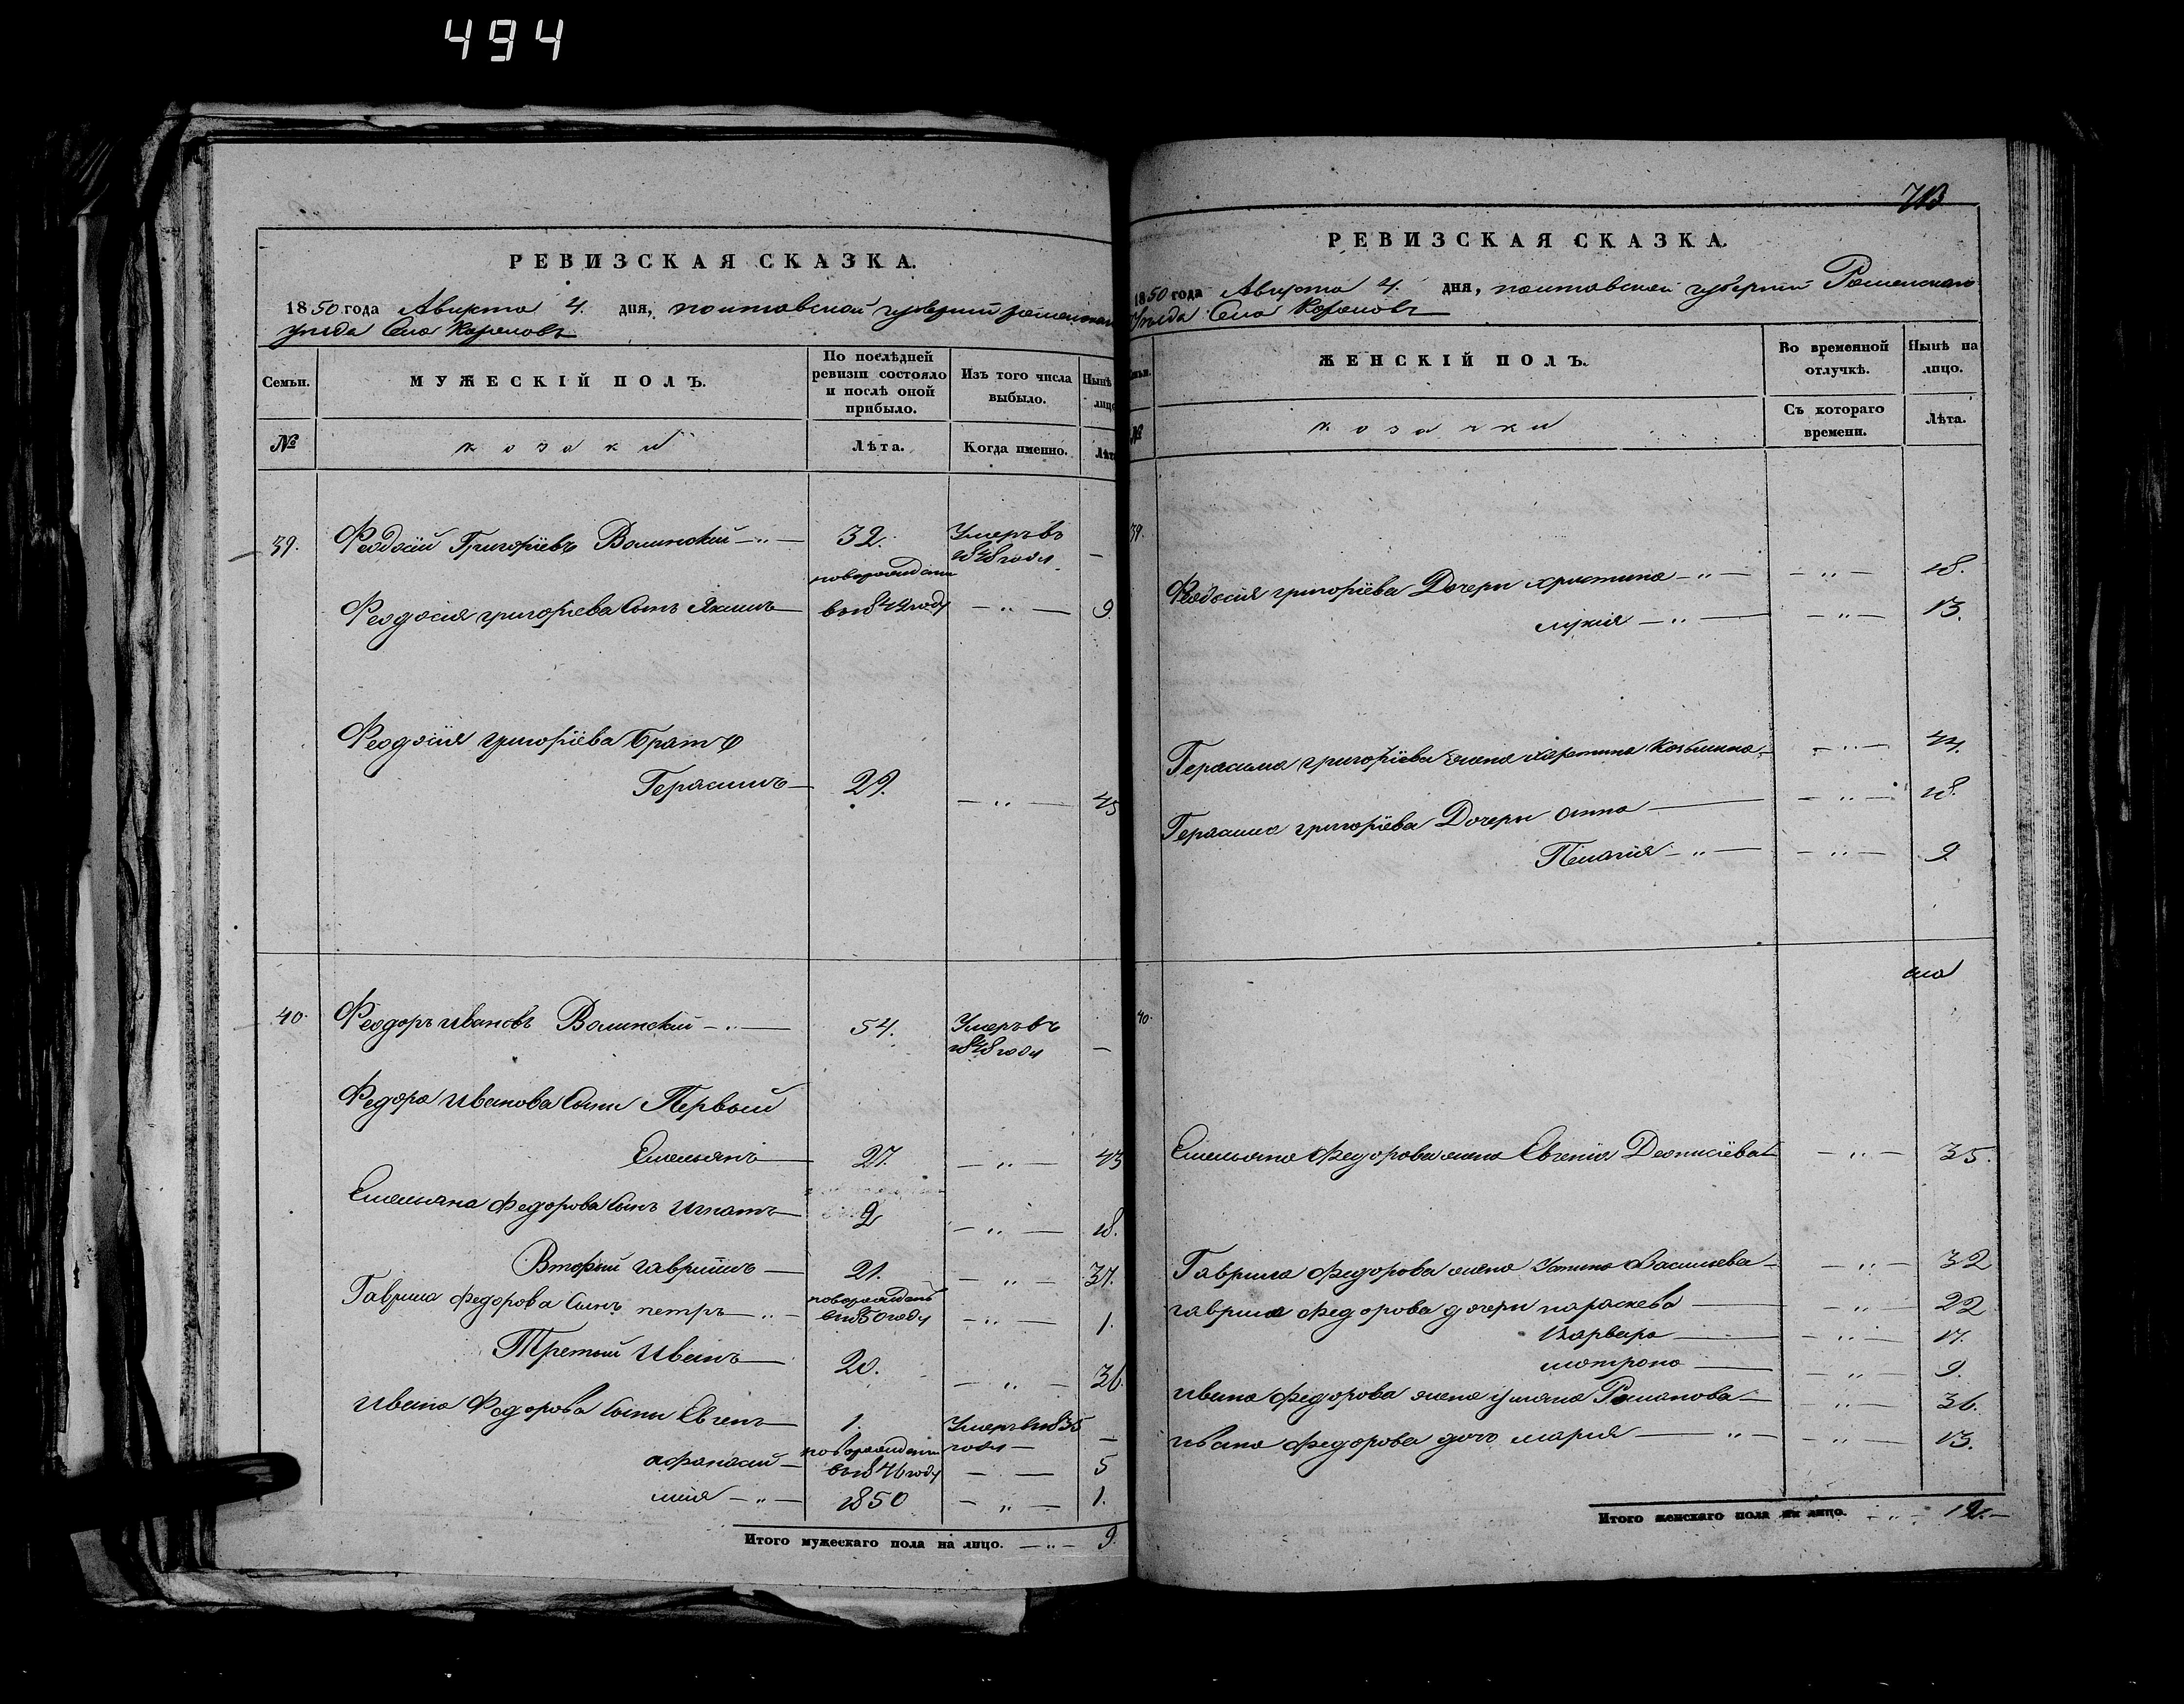 494
РЕВИЗСКАЯ СКАЗКА.
1850 года Августа 4. дня, полтавской губернии роменскаго
уезда Села Корововъ
Семьи. МУЖЕСКІЙ ПОЛЪ. По послѣдней ревизіи состояло и послѣ оной прибыло. Изъ того числа выбыло. Нынѣ лицо
№ козаки Лѣта. Когда именно. Лѣта
39. Феодосій Григоріевъ Волинский 32. Умеръ въ 1848 года —
Феодосія григоріева Сынъ Якимъ новорожденъ въ 1842 году — " — 9
Феодосія григоріева братъ
Герасимъ 29. — " — 45
40. Феодоръ Ивановъ Волинский — " — 54. Умеръ въ 1848 года —
Федора Иванова Сыни Первый
Емельянъ 27. — " — 43
Емельяна Федорова Сынъ Игнатъ 2 — " — 18.
Второй гавриилъ 21. — " — 37.
Гаврила Федорова Сынъ петръ — " — новорожденъ въ 1850 году — " — 1.
Третий Иванъ 20. — " — 36.
Ивана Федорова Сыни Евгенъ 1. Умеръ въ 1835 года —
афанасий новорожденъ въ 1846 году — — 5
илія — " — 1850 — " — 1.
Итого мужескаго пола на лицо. — " — 9.
713
РЕВИЗСКАЯ СКАЗКА.
1850 года Августа 4. дня, полтавской губернии Роменскаго
Уезда Села Корововъ
Семьи. ЖЕНСКІЙ ПОЛЪ. Во временной отлучкѣ. Нынѣ на лицо.
№ козачки Съ котораго времени. Лѣта.
39.
Феодосия григоріева Дочери христина — " — — " — 18.
лукия — " — — " — 13.
Герасима григоріева жена Козьмина — " — 44.
Герасима григоріева Дочери анна — — " — 18.
Пелагия — " — — " — 9
40.
Емельяна Федорова жена Евгения Деонисіева — " — 35.
Гаврила Федорова жена Васильева — " — 32
гаврила Федорова дочери параскева — — " — 22
Варвара — — " — 17.
мотрона — — " — 9.
Ивана Федорова жена уляна Романова — — " — 36.
Ивана Федорова дочь мария — " — — " — 13.
Итого женскаго пола на лицо. — " — 12. —